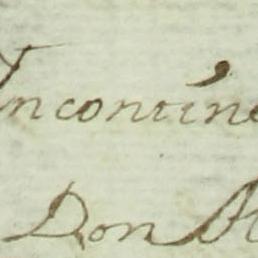 Incontine
Don A